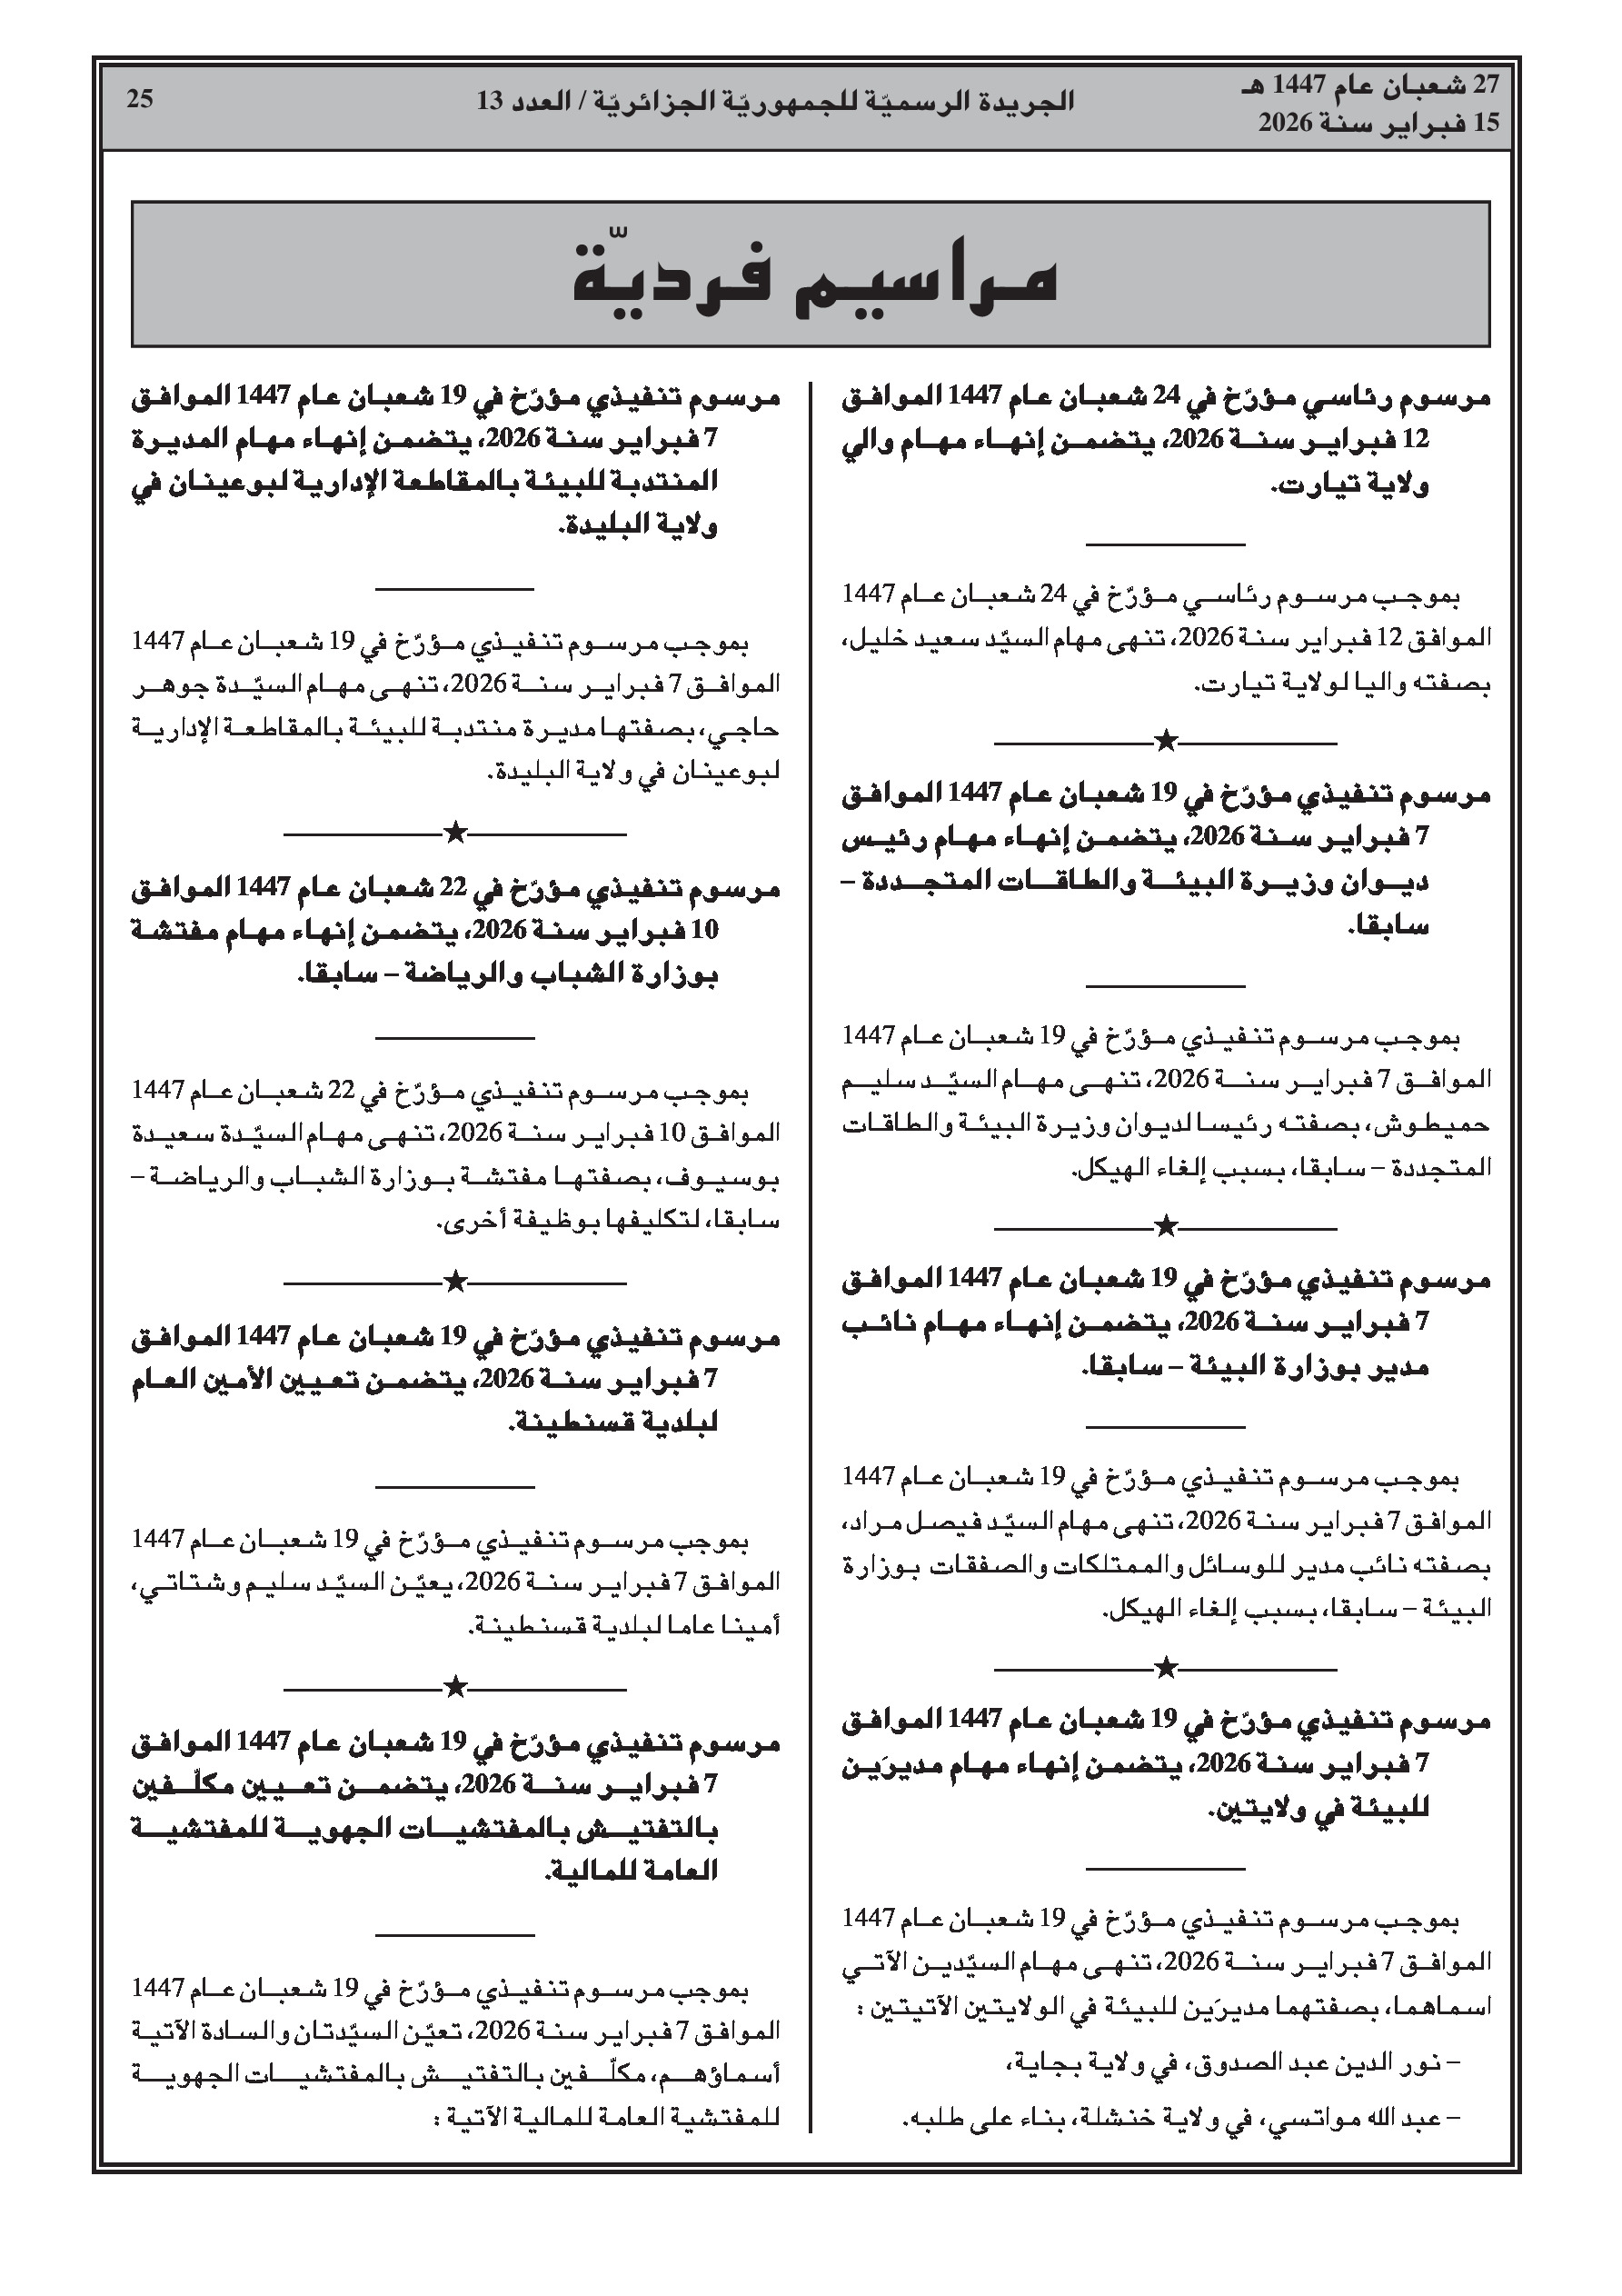 27 شعبان عام 1447 هـ
15 فبراير سنة 2026
الجريدة الرسميّة للجمهوريّة الجزائريّة / العدد 13
25
مراسيم فرديّة
مرسوم رئاسي مؤرّخ في 24 شعبان عام 1447 الموافق
12 فبراير سنة 2026، يتضمن إنهاء مهام والي
ولاية تيارت.
بموجب مرسوم رئاسي مؤرّخ في 24 شعبان عام 1447
الموافق 12 فبراير سنة 2026، تنهى مهام السيّد سعيد خليل،
بصفته واليا لولاية تيارت.
مرسوم تنفيذي مؤرّخ في 19 شعبان عام 1447 الموافق
7 فبراير سنة 2026، يتضمن إنهاء مهام رئيس
ديوان وزيرة البيئة والطاقات المتجددة –
سابقا.
بموجب مرسوم تنفيذي مؤرّخ في 19 شعبان عام 1447
الموافق 7 فبراير سنة 2026، تنهى مهام السيّد سليم
حميطوش، بصفته رئيسا لديوان وزيرة البيئة والطاقات
المتجددة – سابقا، بسبب إلغاء الهيكل.
مرسوم تنفيذي مؤرّخ في 19 شعبان عام 1447 الموافق
7 فبراير سنة 2026، يتضمن إنهاء مهام نائب
مدير بوزارة البيئة – سابقا.
بموجب مرسوم تنفيذي مؤرّخ في 19 شعبان عام 1447
الموافق 7 فبراير سنة 2026، تنهى مهام السيّد فيصل مراد،
بصفته نائب مدير للوسائل والممتلكات والصفقات بوزارة
البيئة – سابقا، بسبب إلغاء الهيكل.
مرسوم تنفيذي مؤرّخ في 19 شعبان عام 1447 الموافق
7 فبراير سنة 2026، يتضمن إنهاء مهام مديرَين
للبيئة في ولايتين.
بموجب مرسوم تنفيذي مؤرّخ في 19 شعبان عام 1447
الموافق 7 فبراير سنة 2026، تنهى مهام السيّدين الآتي
اسماهما، بصفتهما مديرَين للبيئة في الولايتين الآتيتين :
– نور الدين عبد الصدوق، في ولاية بجاية،
– عبد الله مواتسي، في ولاية خنشلة، بناء على طلبه.
مرسوم تنفيذي مؤرّخ في 19 شعبان عام 1447 الموافق
7 فبراير سنة 2026، يتضمن إنهاء مهام المديرة
المنتدبة للبيئة بالمقاطعة الإدارية لبوعينان في
ولاية البليدة.
بموجب مرسوم تنفيذي مؤرّخ في 19 شعبان عام 1447
الموافق 7 فبراير سنة 2026، تنهى مهام السيّدة جوهر
حاجي، بصفتها مديرة منتدبة للبيئة بالمقاطعة الإدارية
لبوعينان في ولاية البليدة.
مرسوم تنفيذي مؤرّخ في 22 شعبان عام 1447 الموافق
10 فبراير سنة 2026، يتضمن إنهاء مهام مفتشة
بوزارة الشباب والرياضة – سابقا.
بموجب مرسوم تنفيذي مؤرّخ في 22 شعبان عام 1447
الموافق 10 فبراير سنة 2026، تنهى مهام السيّدة سعيدة
بوسيوف، بصفتها مفتشة بوزارة الشباب والرياضة –
سابقا، لتكليفها بوظيفة أخرى.
مرسوم تنفيذي مؤرّخ في 19 شعبان عام 1447 الموافق
7 فبراير سنة 2026، يتضمن تعيين الأمين العام
لبلدية قسنطينة.
بموجب مرسوم تنفيذي مؤرّخ في 19 شعبان عام 1447
الموافق 7 فبراير سنة 2026، يعيّن السيّد سليم وشتاتي،
أمينا عاما لبلدية قسنطينة.
مرسوم تنفيذي مؤرّخ في 19 شعبان عام 1447 الموافق
7 فبراير سنة 2026، يتضمن تعيين مكلّفين
بالتفتيش بالمفتشيات الجهوية للمفتشية
العامة للمالية.
بموجب مرسوم تنفيذي مؤرّخ في 19 شعبان عام 1447
الموافق 7 فبراير سنة 2026، تعيّن السيّدتان والسادة الآتية
أسماؤهم، مكلّفين بالتفتيش بالمفتشيات الجهوية
للمفتشية العامة للمالية الآتية :